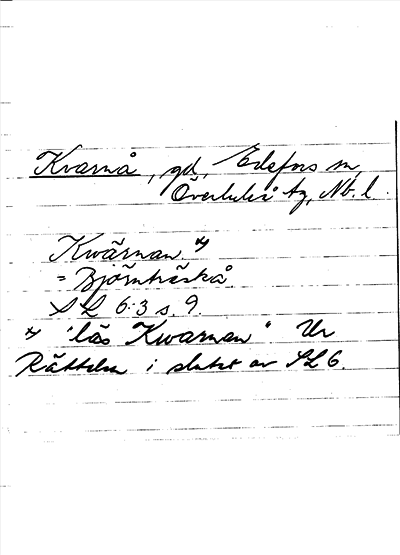 Kvarnå, gd, Edefors sn,
Överluleå tg, Nb. l.
Kwärnan. *)
= Björnträskå
SL 6:3 s. 9.
*) "läs Kwarnan" Ur
Rättelser i slutet av SL 6.